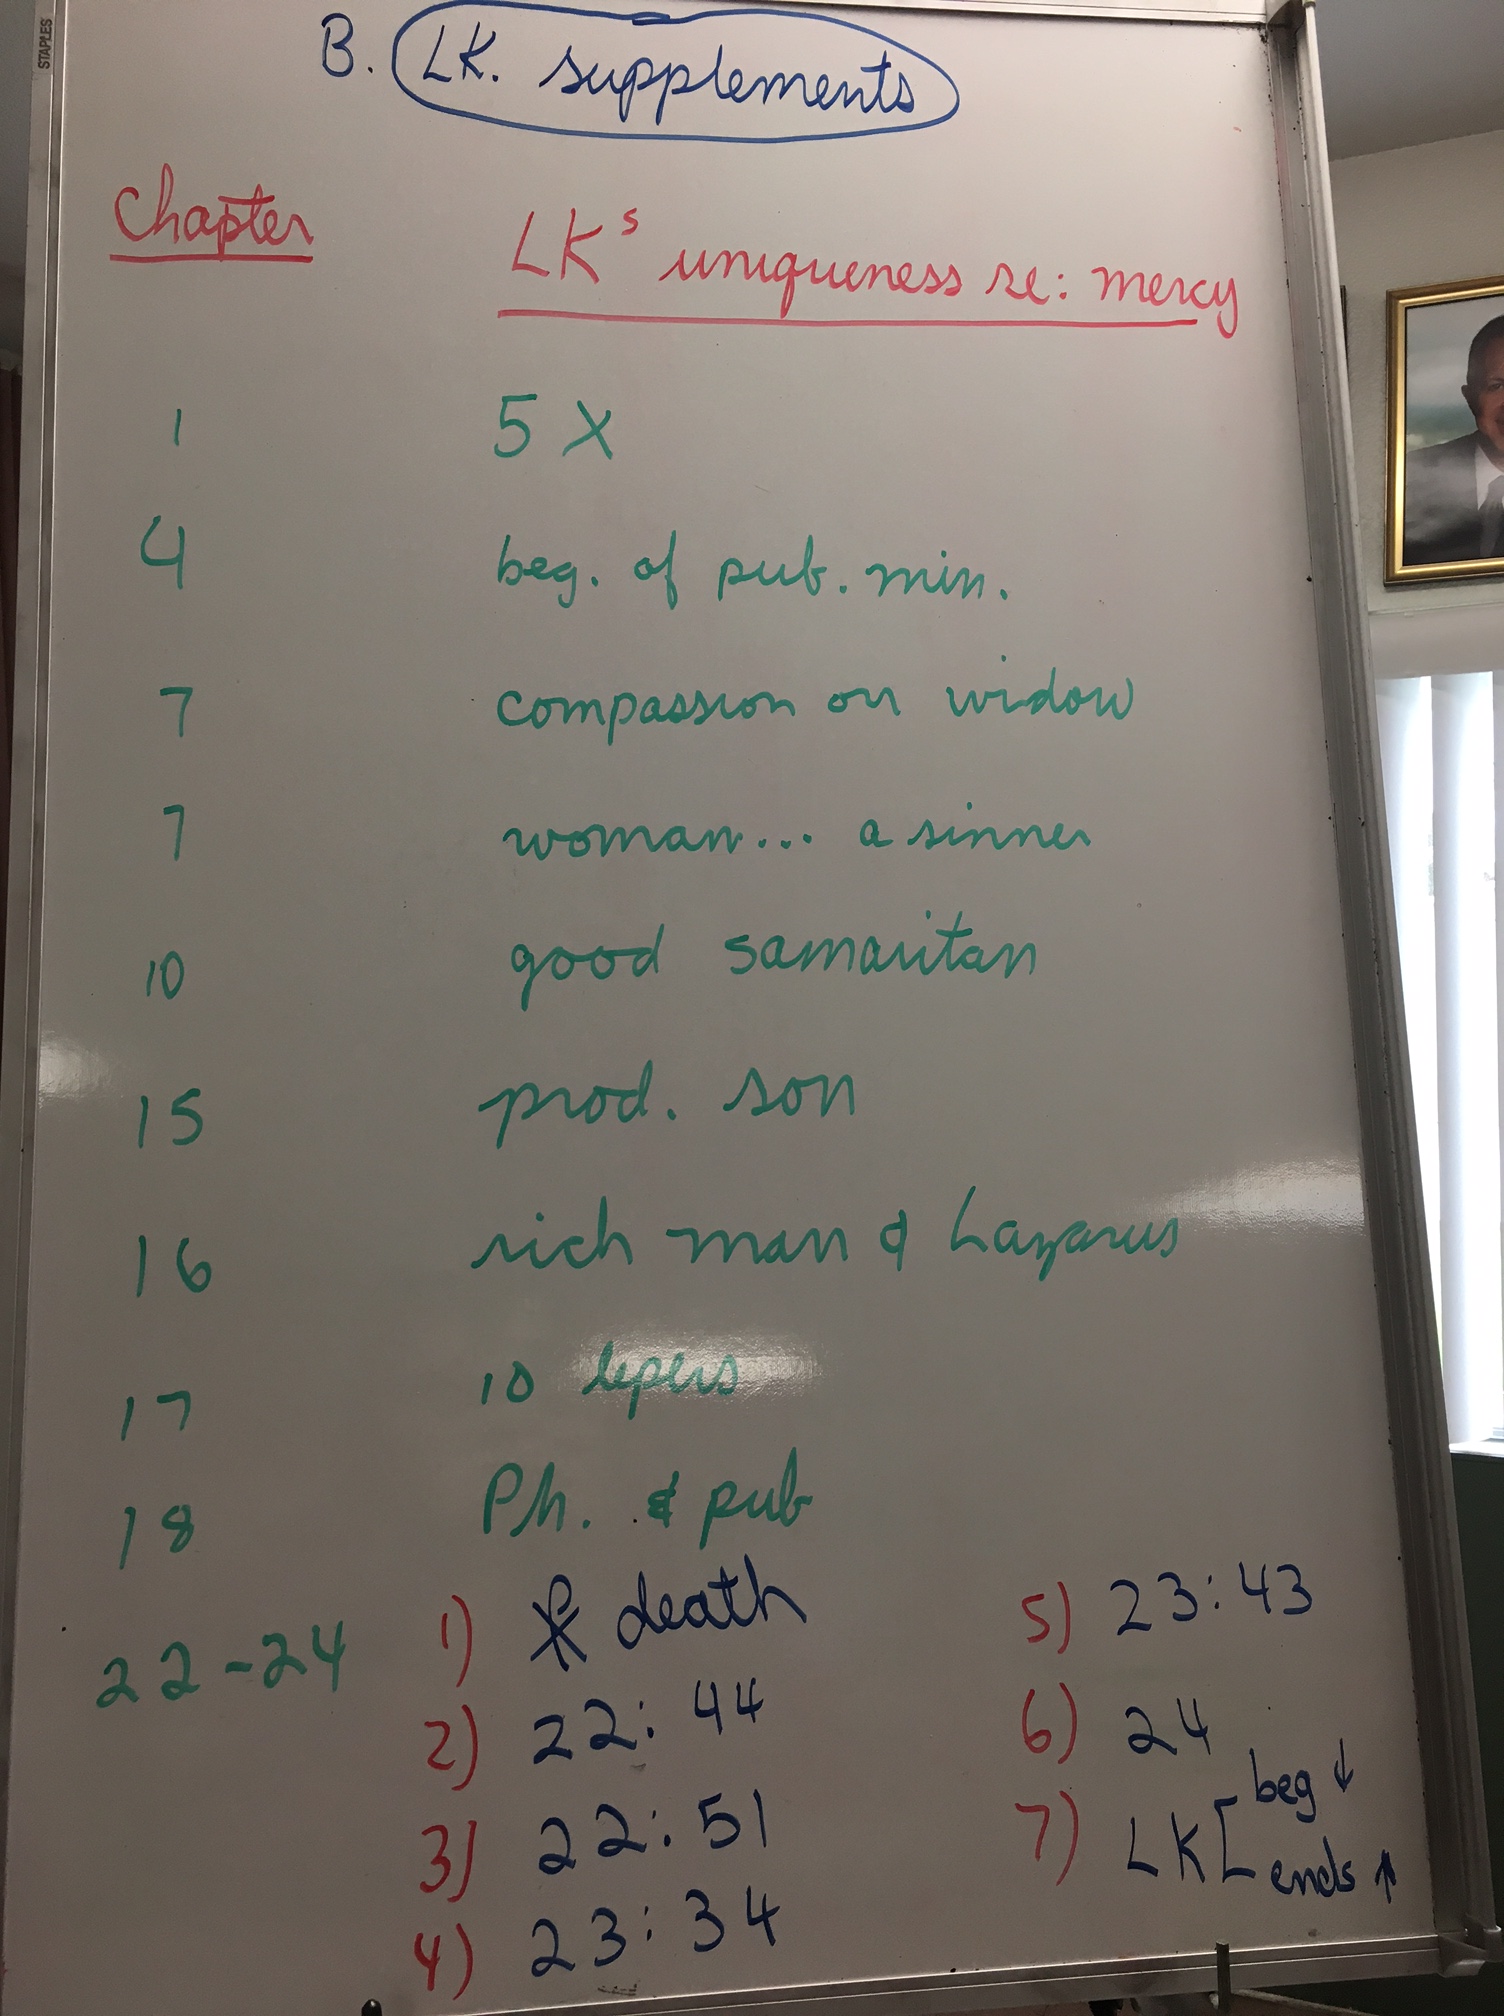 STAPLES
B. LK. supplements
Chapter LKs uniqueness re: mercy
1 5 X
4 beg. of pub. min.
7 compassion on widow
7 woman... a sinner
10 good samaritan
15 prod. son
16 rich man & Lazarus
17 10 lepers
18 Ph. & pub
22-24 1) ☧ death
2) 22:44
3) 22:51
4) 23:34
5) 23:43
6) 24
7) LK [ beg ↓
ends ↑